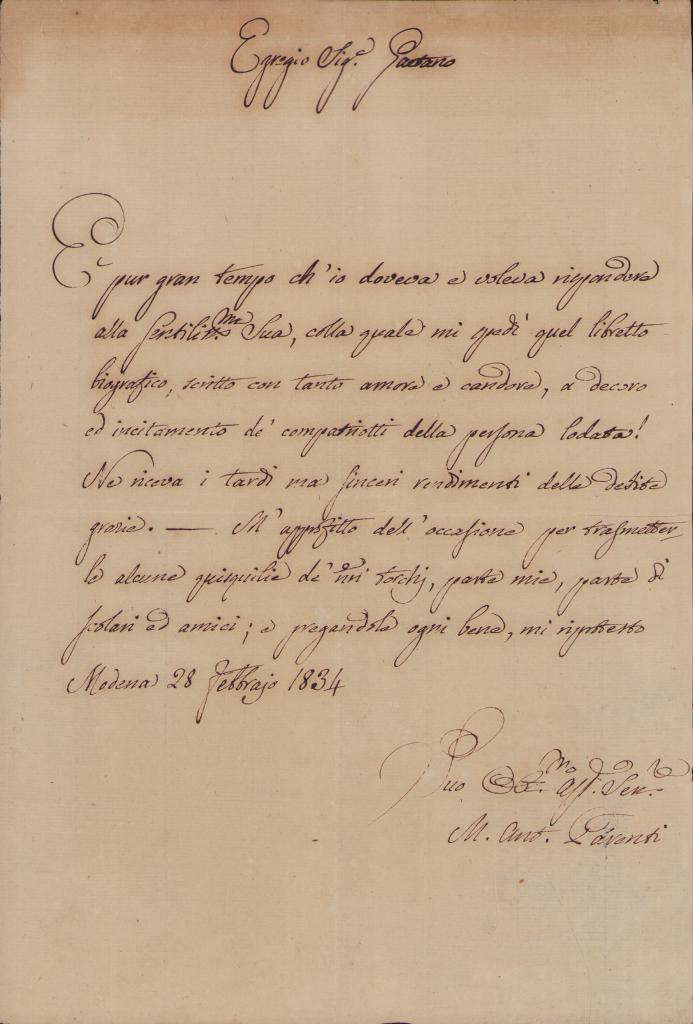 Egregio Sig.r Gaetano
È pur gran tempo ch'io doveva e voleva rispondere
alla Gentiliss.ma Sua, colla quale mi spedì quel libretto
biografico, scritto con tanto amore e candore, a decoro
ed incitamento de' compatriotti della persona lodata!
Ne riceva i tardi ma sinceri rendimenti delle debite
grazie. — M'approfitto dell'occasione per trasmetter
le alcune quisquilie de' nri torchj, parte mie, parte di
scolari ed amici; e pregandole ogni bene, mi riprotesto
Modena 28 Febbrajo 1834
Suo aff. Ser.
M. Ant. Parenti